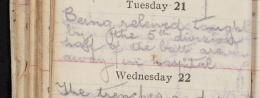 Tuesday 21
Being relieved tonight
by the 5th division
half of the battn are
away in hospital
Wednesday 22
The trenches